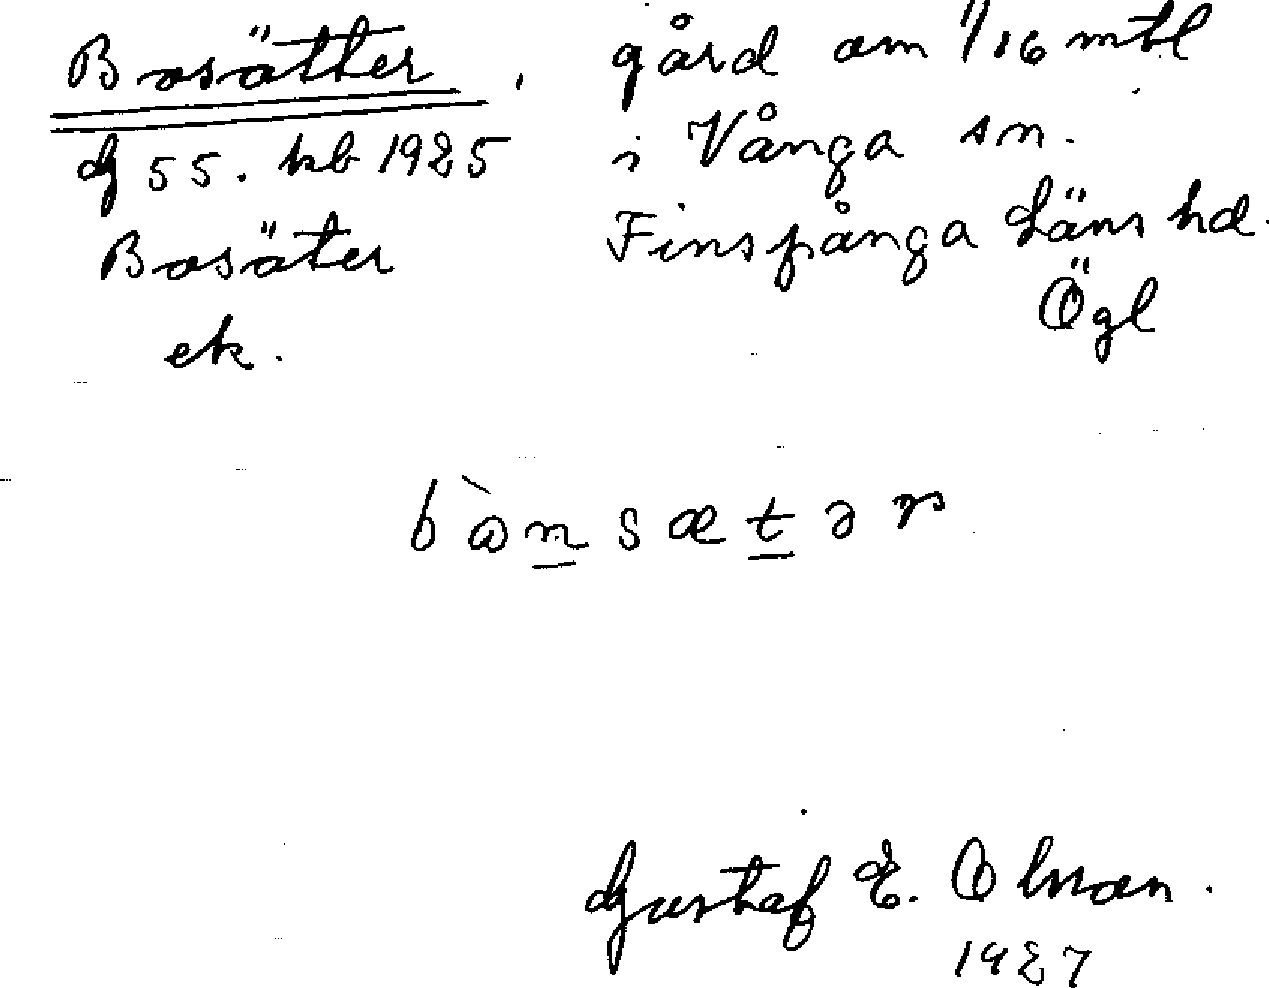 Bosätter, gård om 1/16 mtl
dj 55. kb 1925 i Vånga sn.
Bosäter Finspånga läns hd.
ek. Ögl
bɷ̀nsætər
Gustaf E. Olsson.
1927